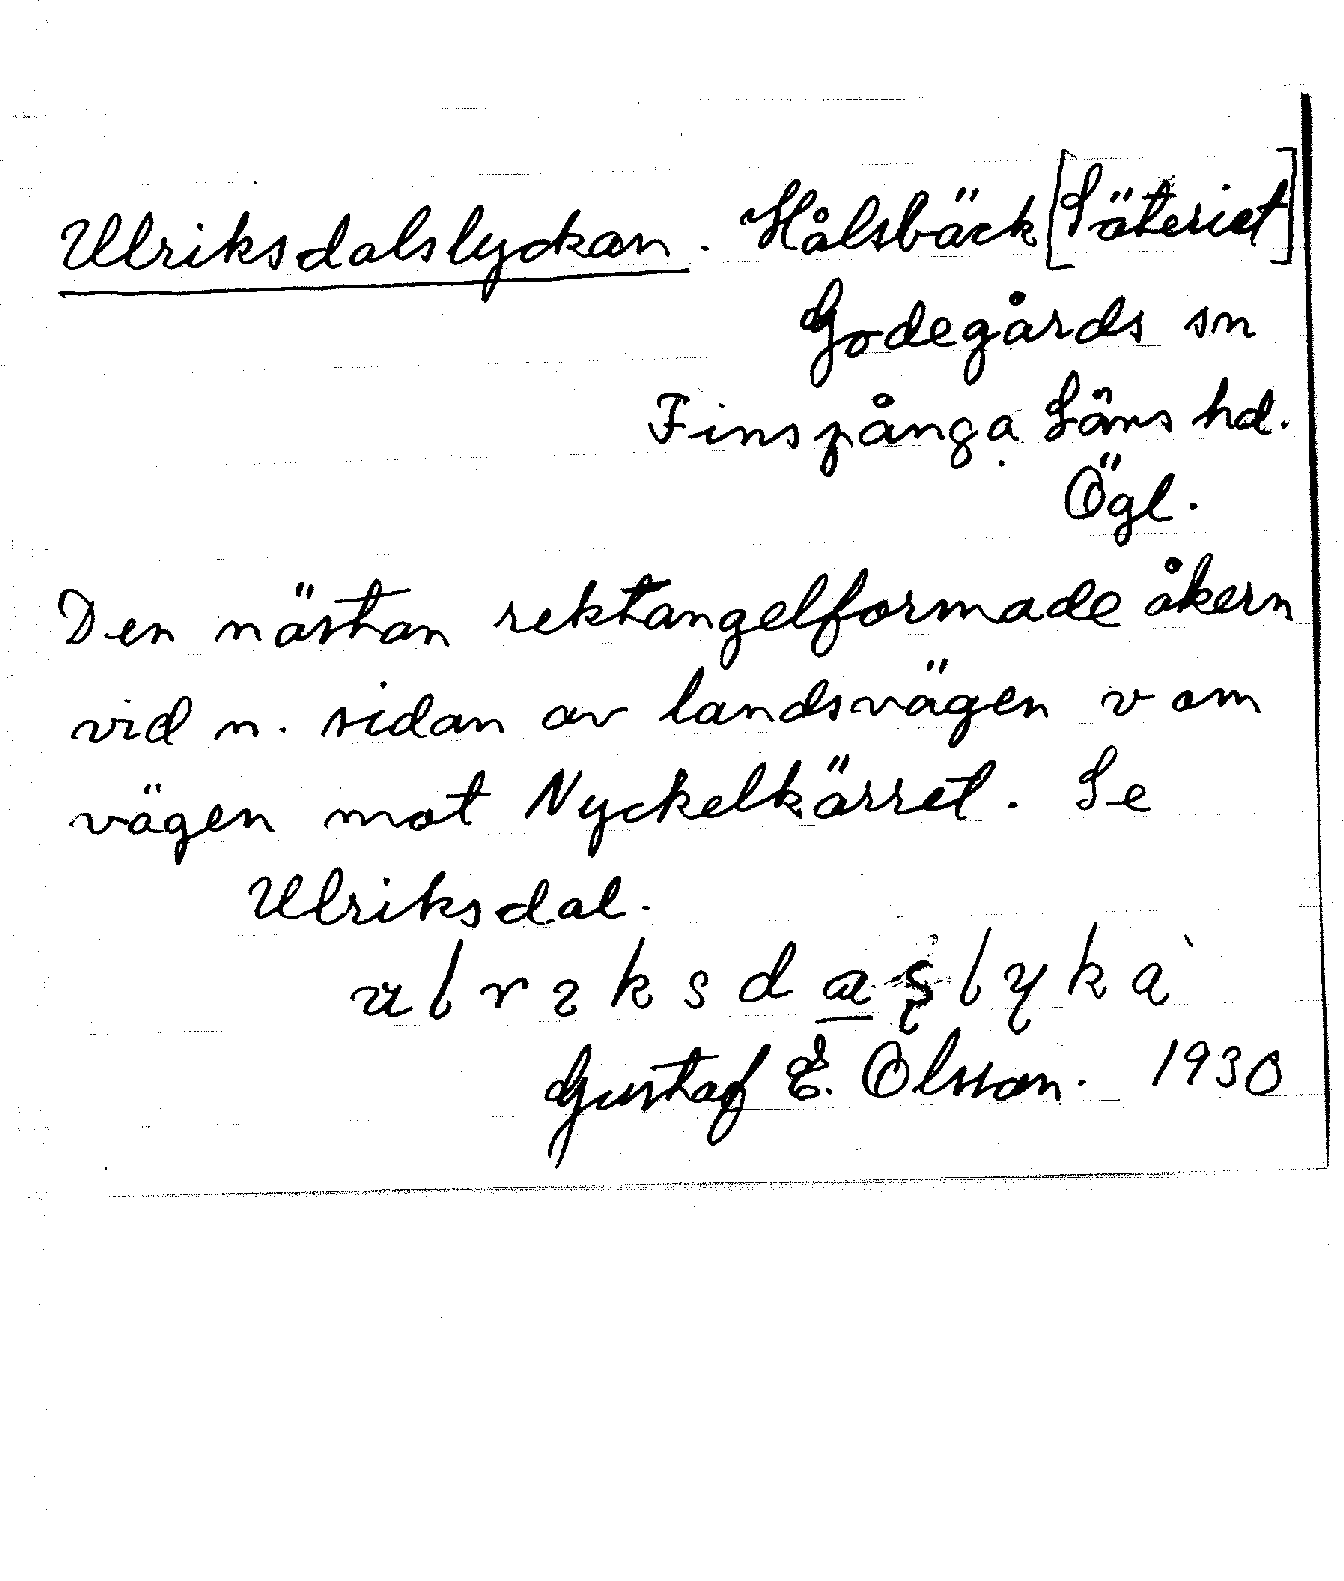 Ulriksdalslyckan. Hålsbäck [Säteriet]
Godegårds sn
Finspånga Läns hd.
Ögl.
Den nästan rektangelformade åkern
vid n. sidan av landsvägen v om
vägen mot Nyckelkärret. Se
Ulriksdal.
Gustaf E. Olsson. 1930